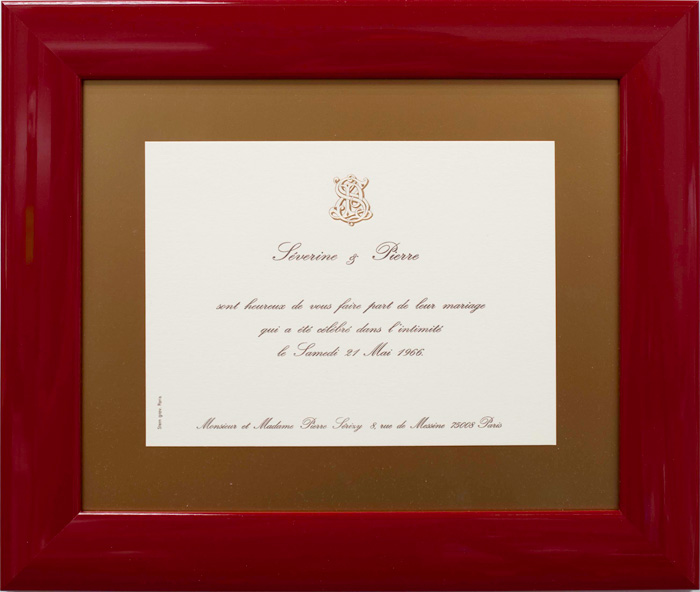 Séverine & Pierre
sont heureux de vous faire part de leur mariage
qui a été célébré dans l'intimité
le Samedi 21 Mai 1966.
Monsieur et Madame Pierre Sérézy 8, rue de Messine 75008 Paris